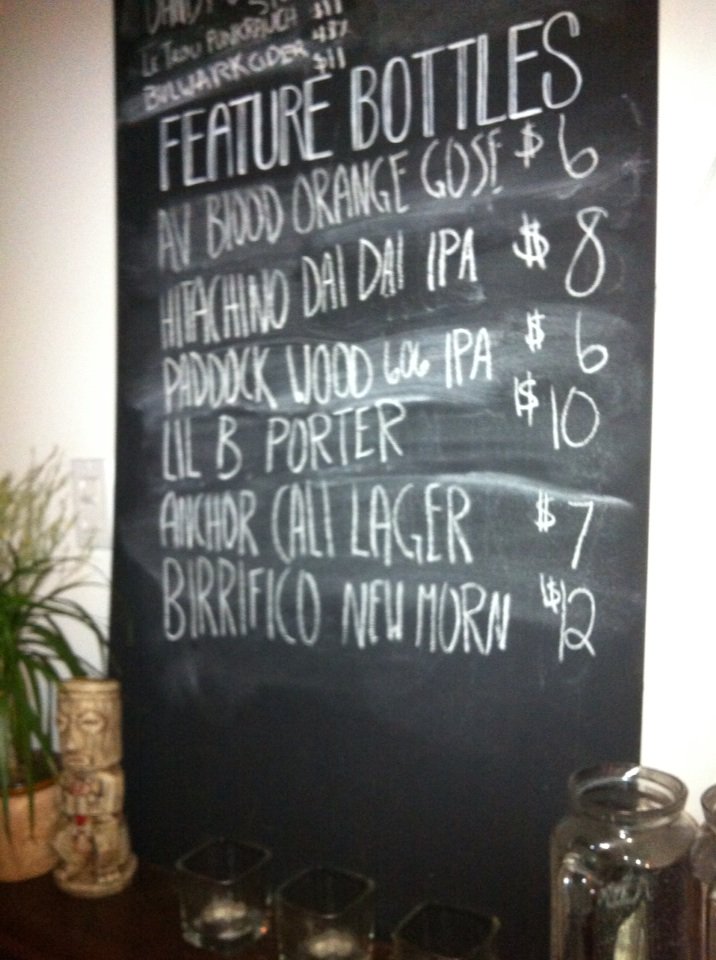 LE TROU PUNKRAUCH $11
BULWARK CIDER $11
FEATURE BOTTLES
AV BLOOD ORANGE GOSE $6
HITACHINO DAI DAI IPA $8
PADDOCK WOOD 606 IPA $6
LIL B PORTER $10
ANCHOR CALI LAGER $7
BIRRIFICO NEW MORN $12